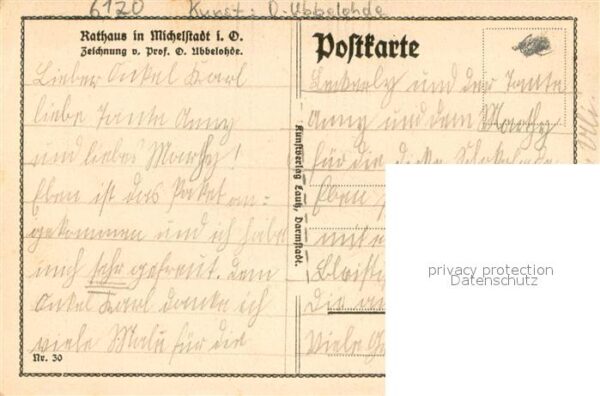 6120 Kunst: O. Ubbelohde
Rathaus in Michelstadt i. O.
Zeichnung v. Prof. O. Ubbelohde.
Lieber Onkel Karl
liebe Tante Anny
und liebes Marthy!
Eben ist das Paket an=
gekommen und ich habe
mich sehr gefreut. Dem
Onkel Karl danke ich
viele Male für die
Nr. 30
Kunstverlag Lautz, Darmstadt.
Postkarte
und der Tante
Anny und dem Marthy
für die Schokolade
Eben
mit
Bleisti
die an
Viele
privacy protection
Datenschutz